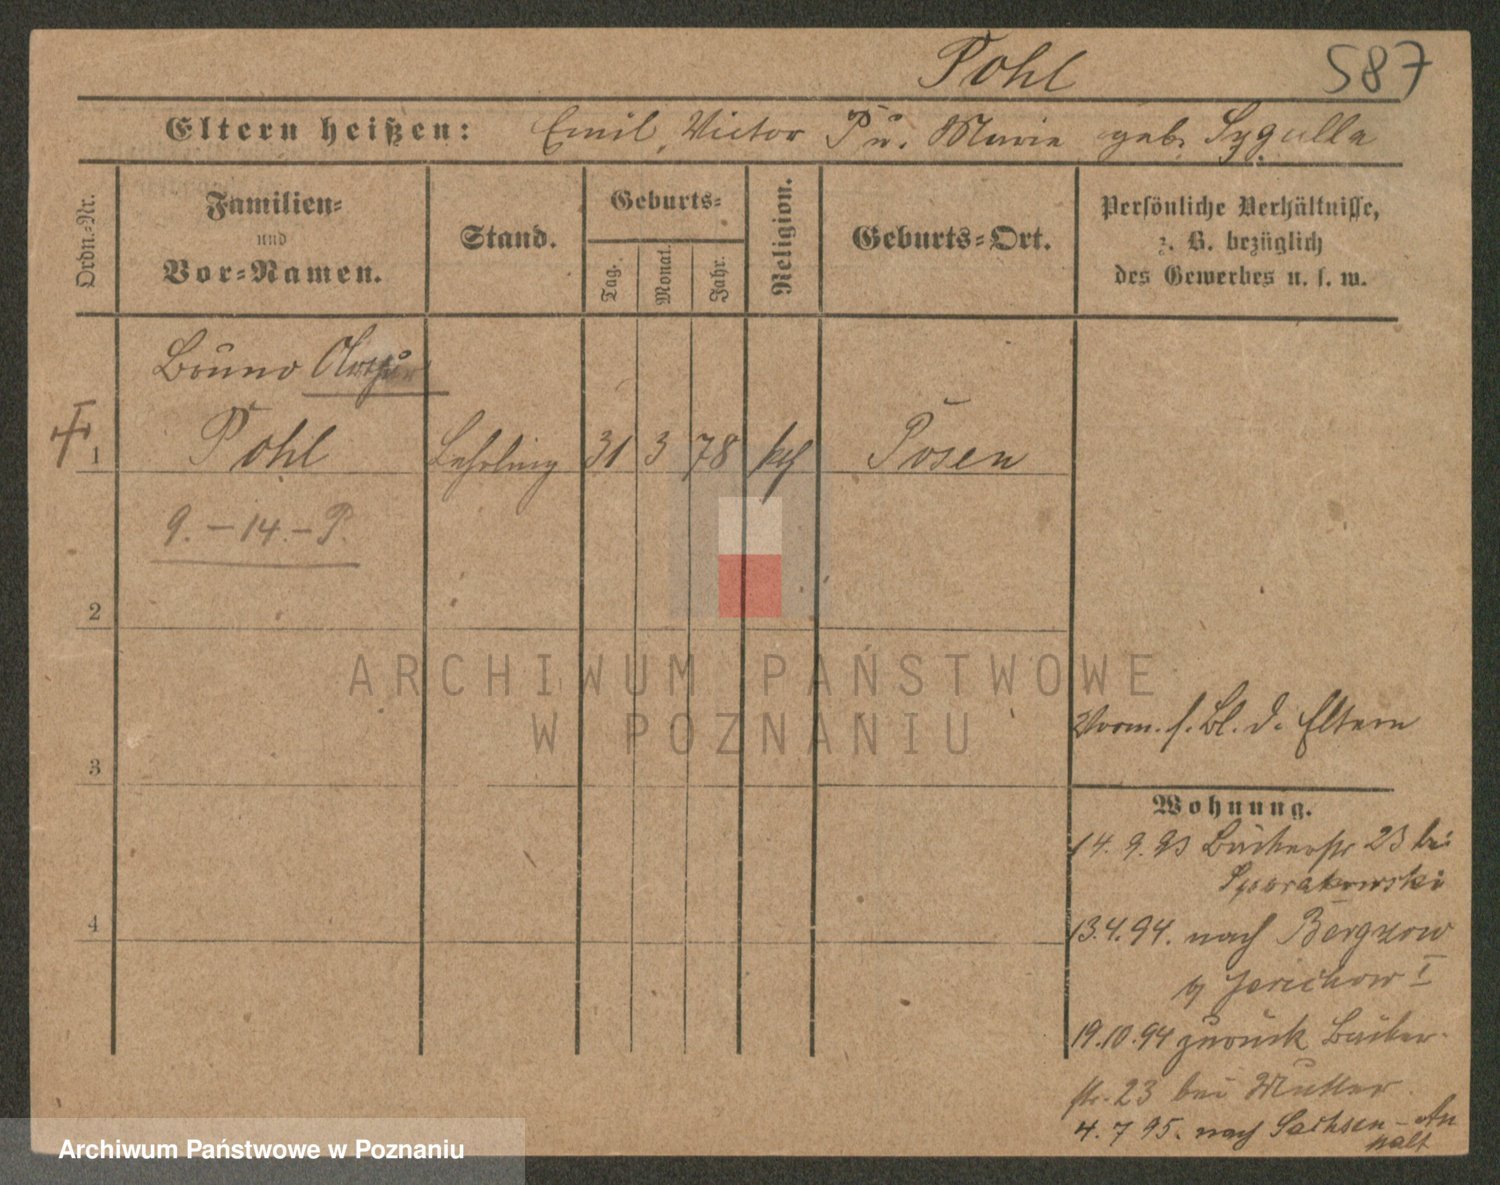 Pohl 587
Eltern heißen: Emil, Victor P u. Marie geb. Sygulla
Ordn.-Nr.
Familien-
und
Vor-Namen.
Stand.
Geburts-
Tag.
Monat.
Jahr.
Religion.
Geburts-Ort.
Persönliche Verhältnisse,
z. B. bezüglich
des Gewerbes u. s. w.
Bruno Arthur
1 Pohl Lehrling 31 3 78 kth Posen
9. – 14. – P.
2
ARCHIWUM PAŃSTWOWE
W POZNANIU
Vorm. s. Bl. d. Eltern
3
Wohnung.
14. 9. 93 Bäckerstr 23 bei
4
13.4.94. nach Bergzow
Jerichow I
19.10.94 zurück Bäcker-
str. 23 bei Mutter
4. 7 95. nach Sachsen-An
halt
Archiwum Państwowe w Poznaniu